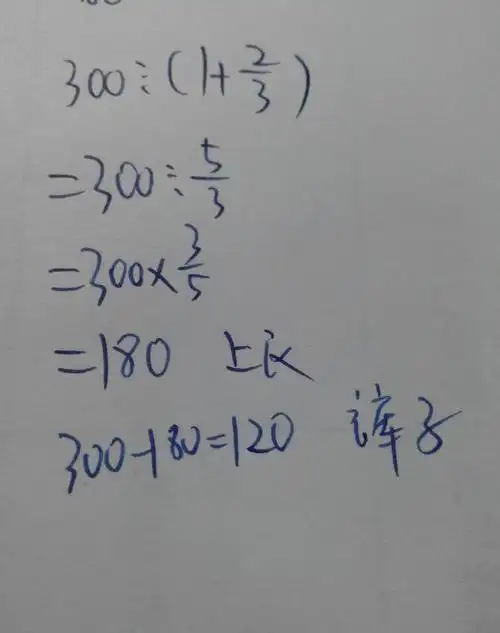 300÷(1+2/3)
=300÷5/3
=300×3/5
=180 上衣
300-180=120 裤子